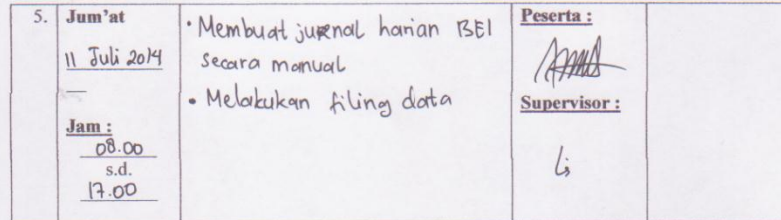 5.
Jum'at
11 Juli 2014
Jam :
08.00
s.d.
17.00
• Membuat jurnal harian BEI
secara manual
• Melakukan filing data
Peserta :
Supervisor :